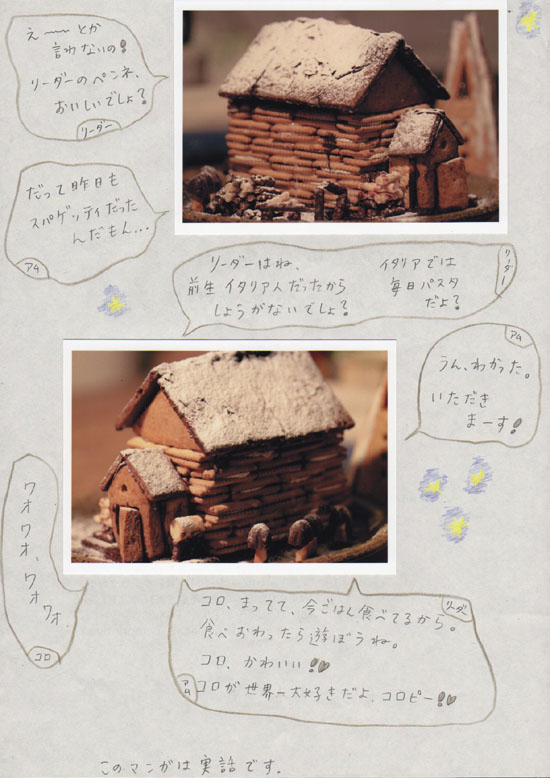 え〜〜とか
言わないの!
リーダーのペンネ、
おいしいでしょ?
リーダー
だって昨日も
スパゲッティだった
んだもん...
アム
リーダーはね、
前生イタリア人だったから
しょうがないでしょ?
イタリアでは
毎日パスタ
だよ?
リーダー
アム
うん、わかった。
いただき
まーす!
ワオワオ、ワオワオ、
コロ
リーダー
コロ、まってて、今ごはん食べてるから。
食べおわったら遊ぼうね。
コロ、かわいい!♥
アム
コロが世界一大好きだよ、コロピー!♥
このマンガは実話です。